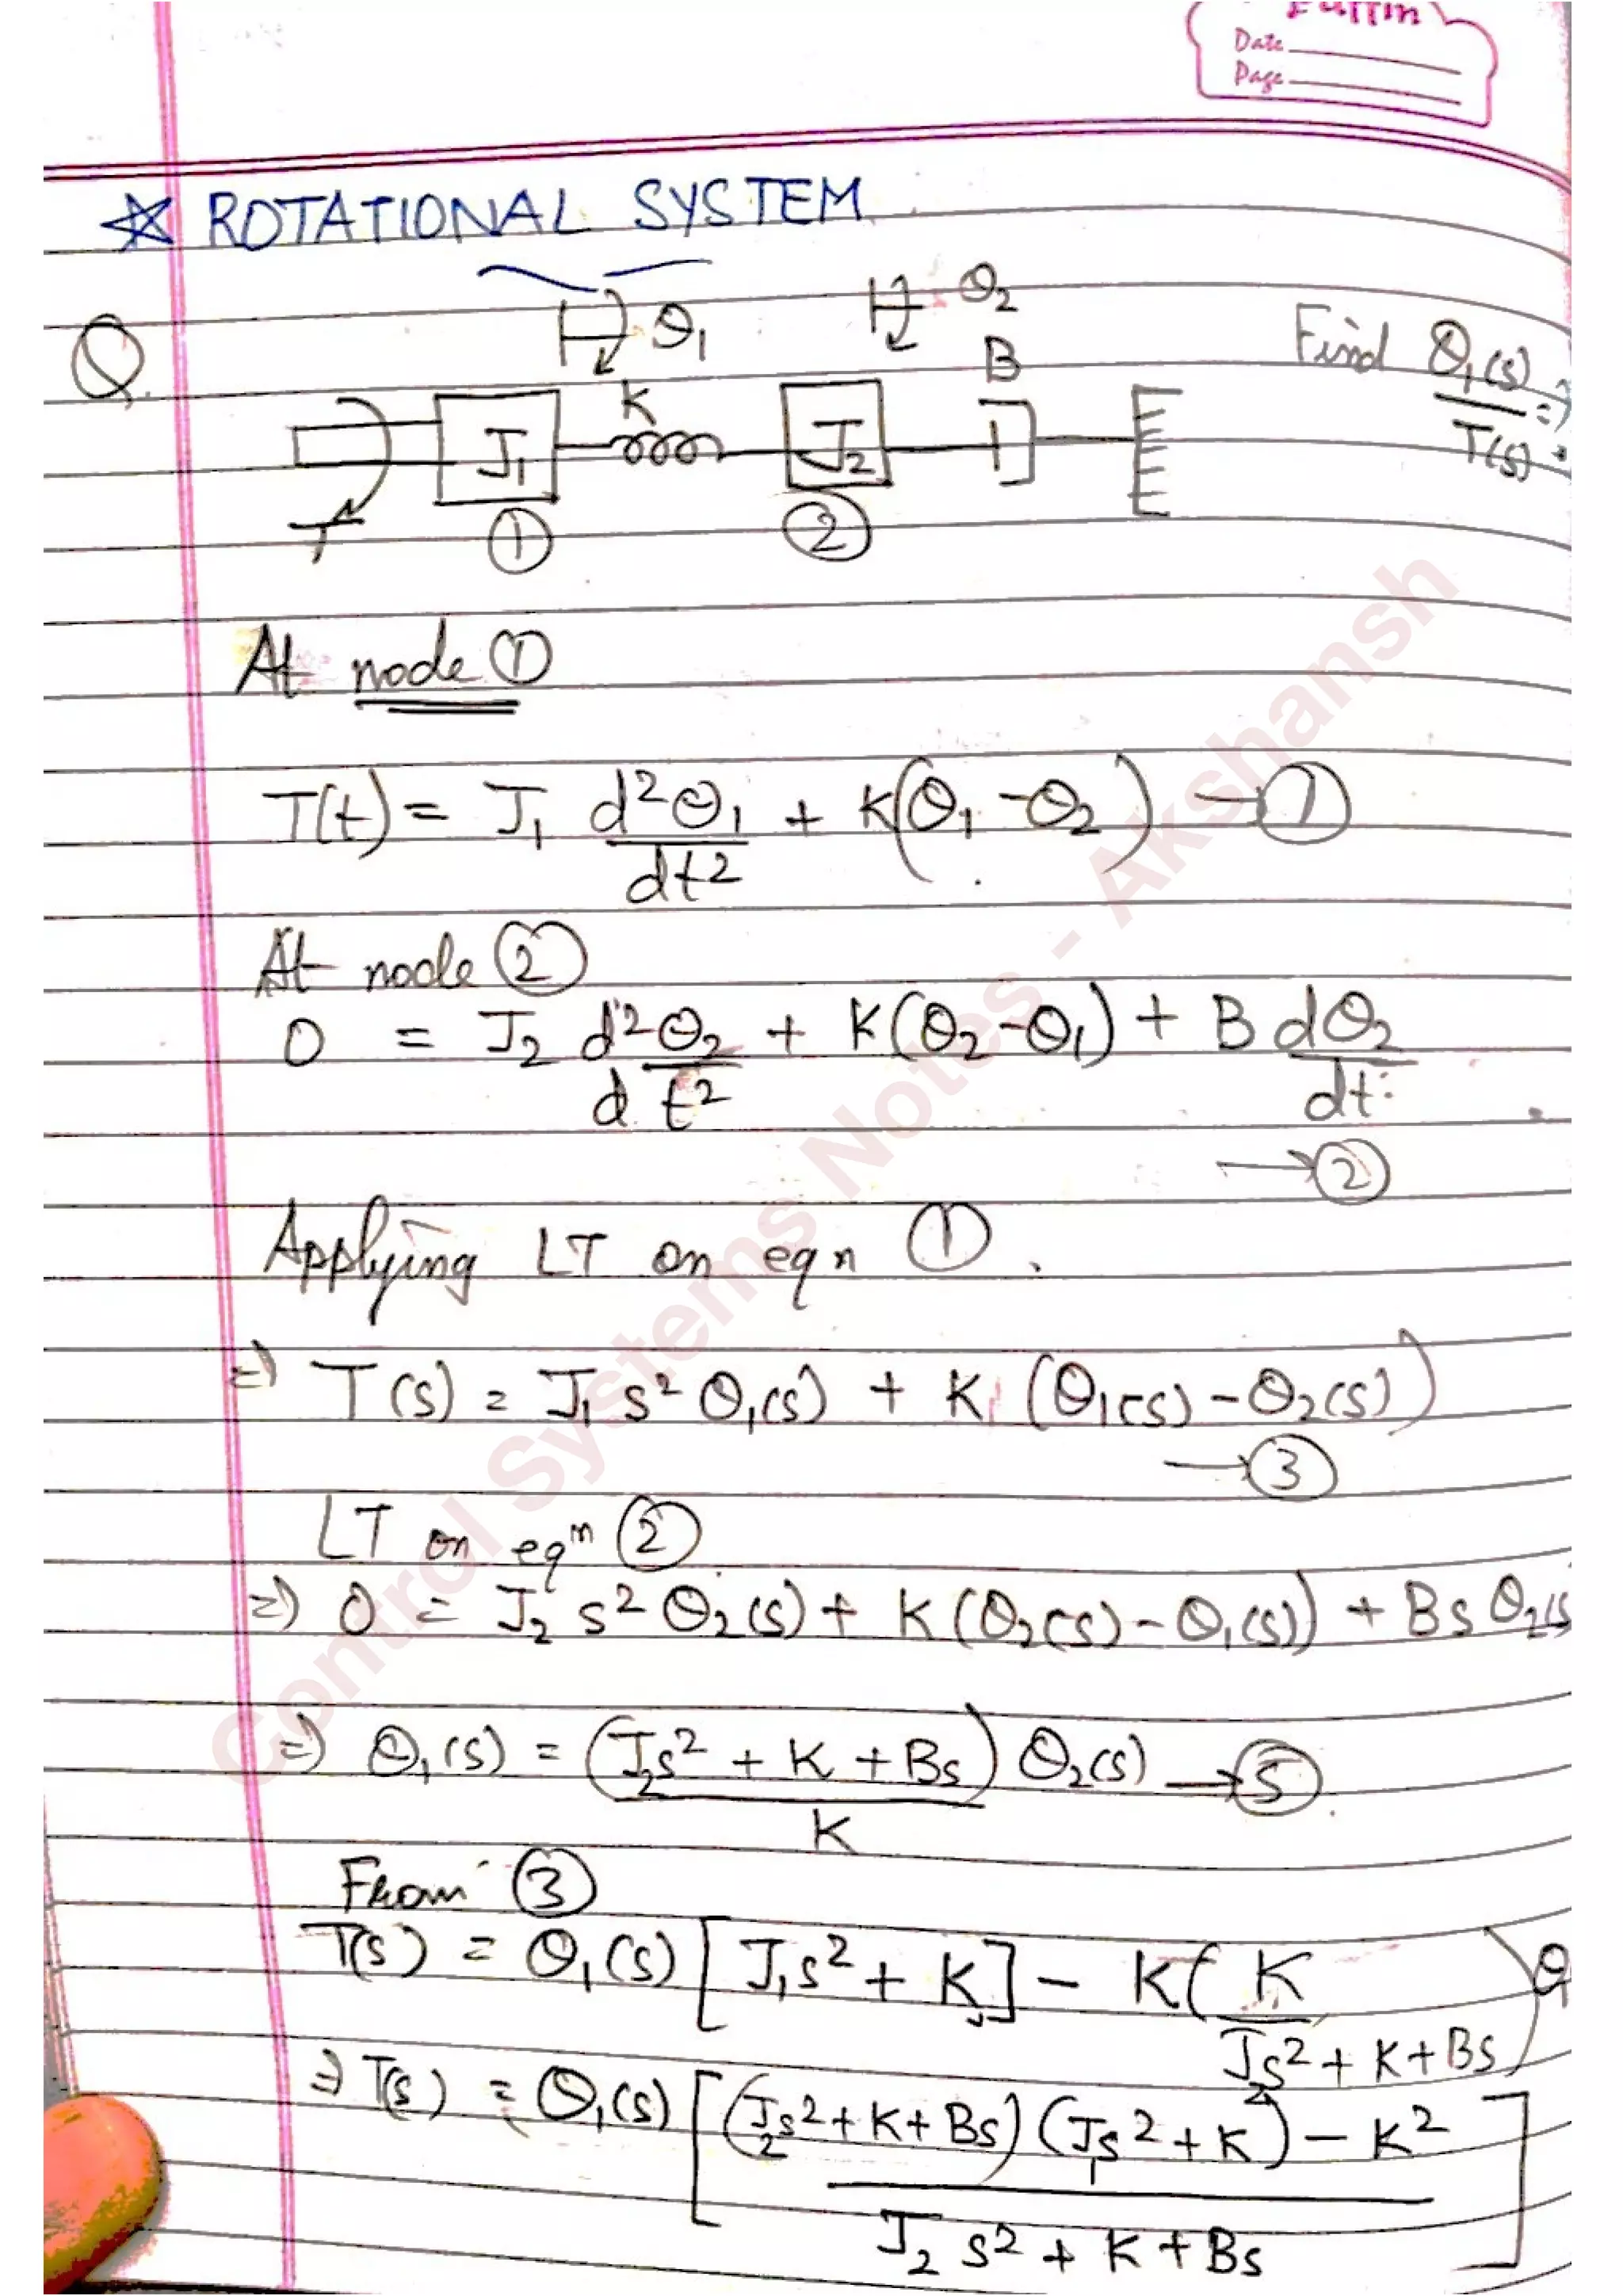 Date
Page
☆ ROTATIONAL SYSTEM
Q. θ₁ θ₂ Find θ₁(s)/T(s) =>
K B
J₁ J₂
T ① ②
At node ①
T(t) = J₁ d²θ₁/dt² + K(θ₁ - θ₂) → ①
At node ②
0 = J₂ d²θ₂/dt² + K(θ₂ - θ₁) + B dθ₂/dt
→ ②
Applying LT on eqn ①.
=> T(s) = J₁s²θ₁(s) + K (θ₁(s) - θ₂(s))
→ ③
LT on eqⁿ ②
=> 0 = J₂s²θ₂(s) + K(θ₂(s) - θ₁(s)) + Bsθ₂(s
=> θ₁(s) = (J₂s² + K + Bs)/K θ₂(s) → ⑤
From ③
T(s) = θ₁(s) [J₁s² + K] - K(K/(J₂s² + K + Bs)) θ
=> T(s) = θ₁(s) [((J₂s² + K + Bs)(J₁s² + K) - K²)/(J₂s² + K + Bs)]
Control Systems Notes - Akshansh